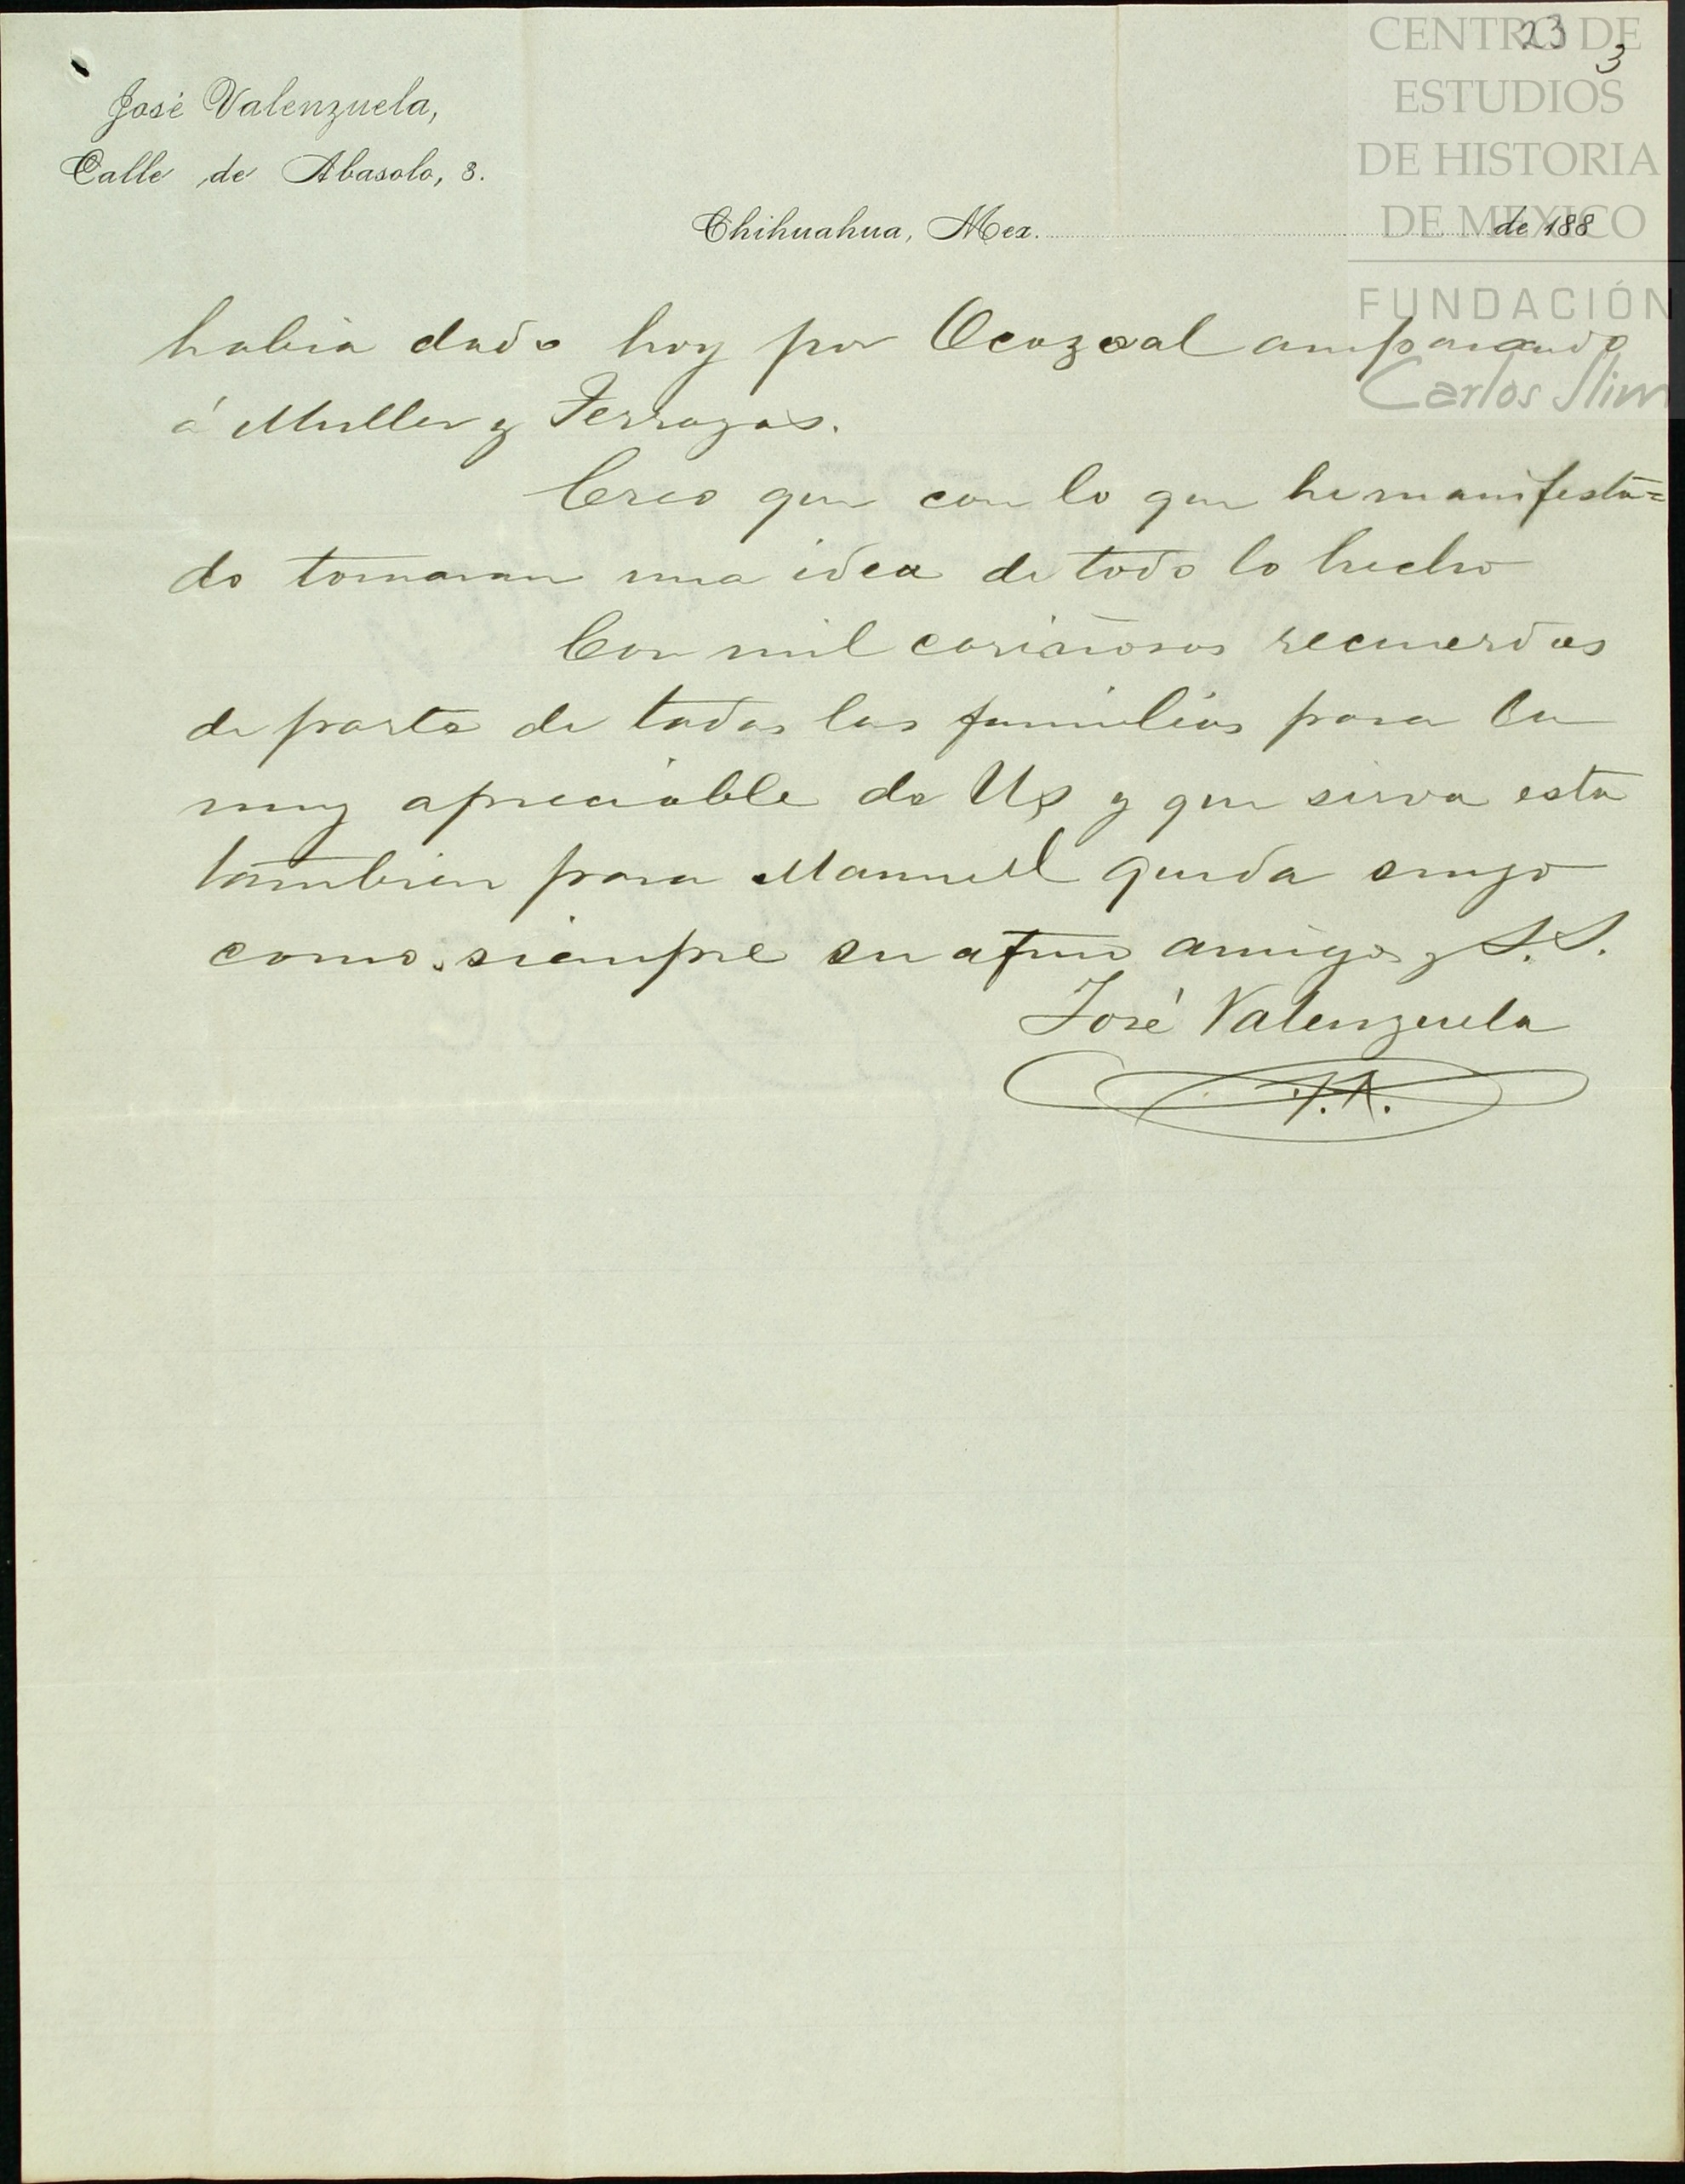 23
3
CENTRO DE
ESTUDIOS
DE HISTORIA
DE MEXICO
FUNDACIÓN
Carlos Slim
José Valenzuela,
Calle de Abasolo, 3.
Chihuahua, Mex. de 188
habia dado hoy por amparando
á Muller y Terrazas.
Creo que con lo que he manifesta=
do tomaran una idea de todo lo hecho
Con mil cariñosos recuerdos
de parte de todas las familias para la
muy apreciable de Us y que sirva esta
tambien para Manuel queda suyo
como siempre su afmo amigo y S.S.
José Valenzuela